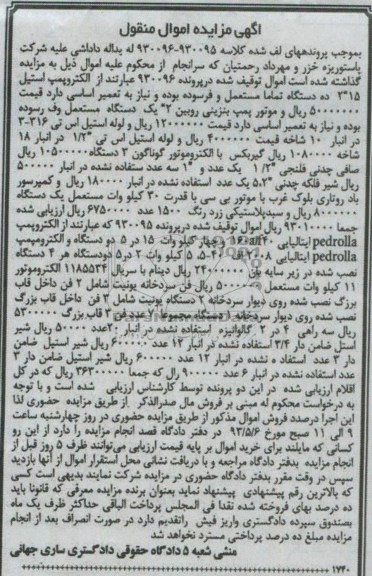 آگهی مزایده اموال منقول
بموجب پرونده‌های لف شده کلاسه ۹۳۰۰۹۵-۹۳۰۰۹۶ له یداله داداشی علیه شرکت
پاستوریزه خزر و مهرداد رحمتیان که سرانجام از محکوم علیه اموال ذیل به مزایده
گذاشته شده است اموال توقیف شده درپرونده ۹۳۰۰۹۶ عبارتند از الکتروپمپ استیل
۳"۱۵ ده دستگاه تماما مستعمل و فرسوده بوده و نیاز به تعمیر اساسی دارد قیمت
ریال و موتور پمپ بنزینی روبین ۲" یک دستگاه مستعمل وف رسوده
بوده و نیاز به تعمیر اساسی دارد قیمت ۱۲۰۰۰۰۰ ریال و لوله استیل اس تی ۳۱۶-۳
در انبار ۱۰ شاخه قیمت ۴۰۰۰۰۰۰ ریال و لوله استیل اس تی ۱/۲" در انبار ۱۸
شاخه ۱۰۸۰۰۰۰ ریال گیربکس با الکتروموتور گوناگون ۳ دستگاه ۱۰۵۰۰۰۰۰ ریال
صافی چدنی فلنجی ۱/۲" یک عدد و ۱" سه عدد استفاده نشده در انبار ۵۰۰۰۰۰
ریال شیر فلکه چدنی ۵.۳" یک عدد استفاده نشده در انبار ۱۸۰۰۰۰ ریال و کمپرسور
باد روتاری بلوک غرب با موتور بی سی با قدرت ۳۰ کیلو وات مستعمل یک دستگاه
ریال و سبدپلاستیکی زرد رنگ ۱۵۰۰ عدد ۶۷۵۰۰۰۰ ریال ارزیابی شده
جمعا ۹۳۰۱۰۰۰۰ ریال اموال توقیف شده درپرونده ۹۳۰۰۹۵ که عبارتند از الکتروپمپ
pedrolla ایتالیایی چهار کیلو وات ۱۵ در ۵ دو دستگاه و الکتروپمپ
pedrolla ایتالیایی ۵ کیلو وات ۲ در۵ دودستگاه هر ۴ دستگاه
نصب شده در زیر سایه بان ۲۴۰۰۰۰۰۰ ریال دینام با سریال ۱۱۸۵۵۳۴ الکتروموتور
۱۱ کیلو وات مستعمل ریال فن سردخانه یونیت شامل ۲ فن داخل قاب
بزرگ نصب شده روی دیوار سردخانه ۲ دستگاه یونیت شامل ۳ فن داخل قاب بزرگ
نصب شده روی دیوار سردخانه ۱ دستگاه مجموعا ۷ عدد فن ۳ قاب بزرگ
ریال سه راهی ۴ در ۲ گالوانیزه استفاده نشده در انبار ۲۰عدد ۵۰۰۰۰ ریال شیر
استل ضامن دار ۳/۴ استفاده نشده در انبار ۱۲ عدد ۶۰۰۰۰۰ ریال شیر استیل ضامن
دار ۳ عدد استفاده نشده در انبار ۱۲ عدد ۶۰۰۰۰۰ ریال شیر استیل ضامن دار ۳
عدد استفاده نشده در انبار ۶ عدد ۹۰۰۰۰۰ رال که جمعا ۳۶۳۰۰۰۰۰ ریال که در کل
اقلام ارزیابی شده در این دو پرونده توسط کارشناس ارزیابی شده است و با توجه
به درخواست محکوم له مبنی بر فروش مال صدرالذکر از طریق مزایده حضوری لذا
این اجرا درصدد فروش اموال مذکور از طریق مزایده حضوری در روز چهارشنبه ساعت
۹ الی ۱۱ صبح مورخ ۹۳/۵/۶ در دفتر دادگاه قصد انجام مزایده را دارد از این رو
کسانی که مایلند برای خرید اموال بر پایه قیمت ارزیابی می‌توانند ظرف ۵ روز قبل از
انجام مزایده بدفتر دادگاه مراجعه و با دریافت نشانی محل استقرار اموال از آنها بازدید
سپس در وقت مقرر بدفتر دادگاه حضوری در مزایده شرکت نمایند بدیهی است کسی
که بالاترین رقم پیشنهادی پیشنهاد نماید بعنوان برنده مزایده معرفی که قانونا باید
ده درصد بهای فروخته شده نقدا فی المجلس پرداخت الباقی حداکثر ظرف یک ماه
بصندوق سپرده دادگستری واریز فیش راتقدیم دارد در صورت انصراف بعد از انجام
مزایده مبلغ ده درصد پرداختی مسترد نخواهد شد
منشی شعبه ۵ دادگاه حقوقی دادگستری ساری جهانی
۱۷۴۰